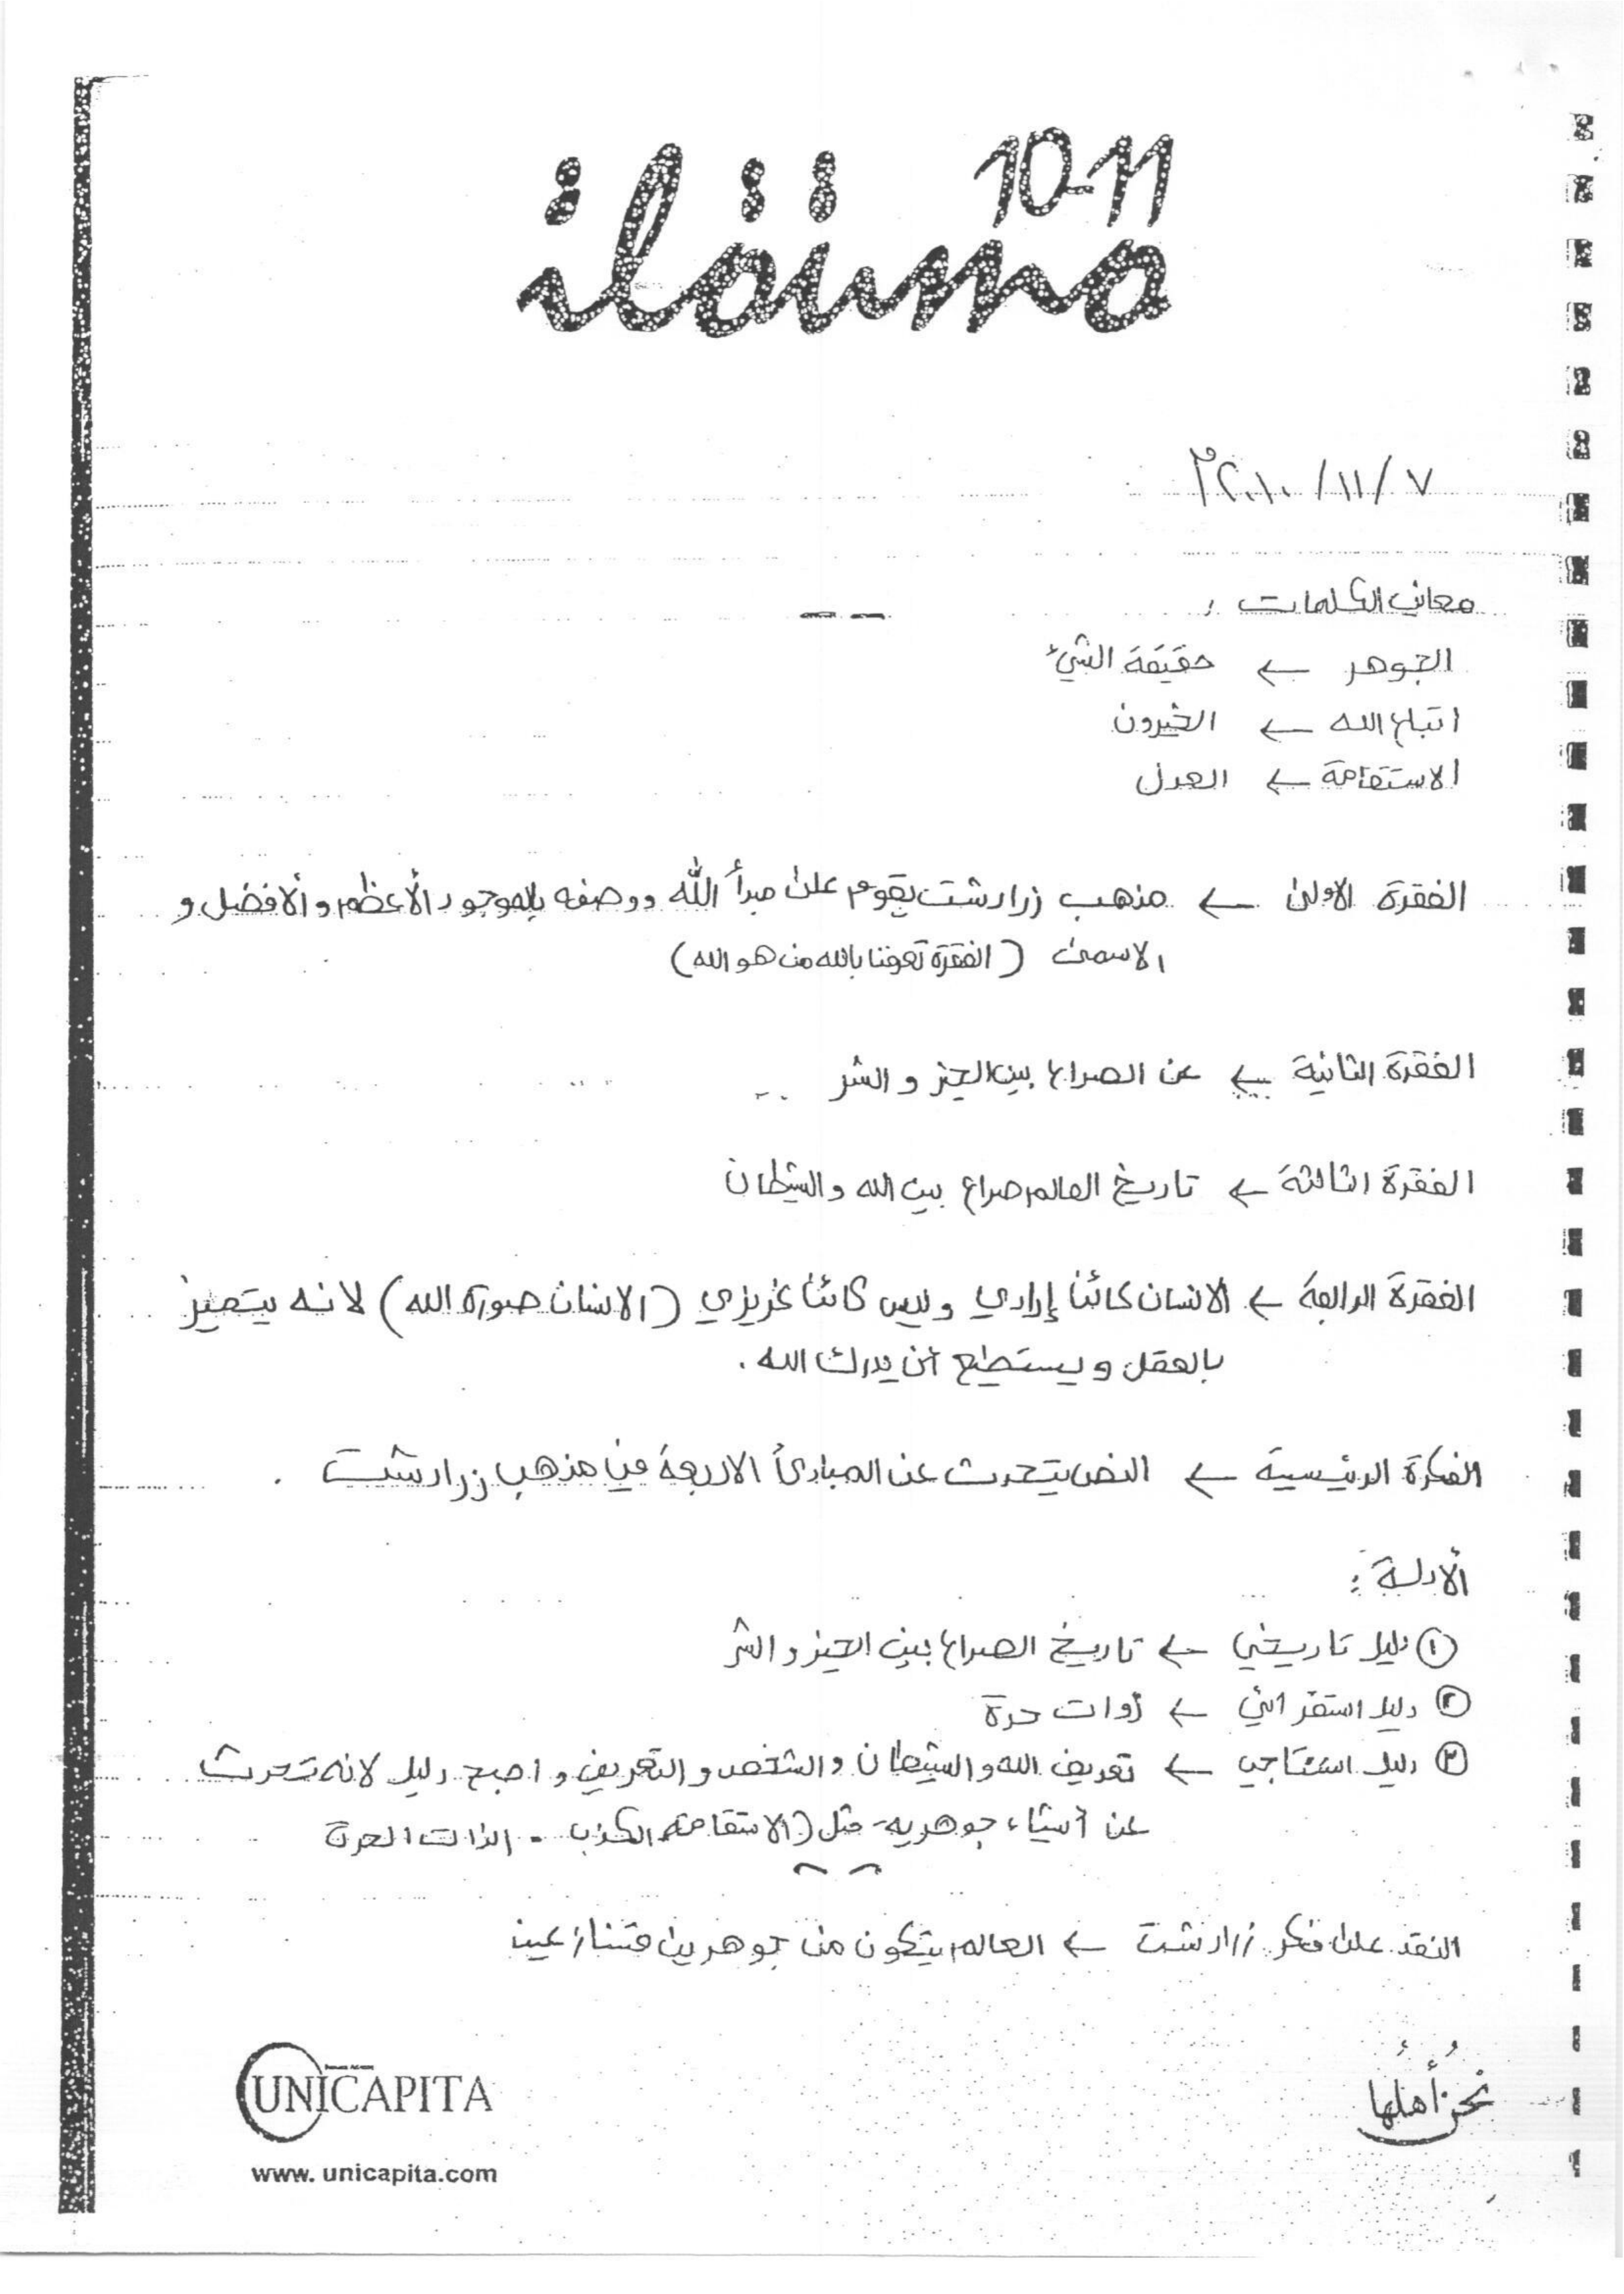 10-11
ilöümo
٢٠١٠/١١/٧م
معاني الكلمات :
الجوهر ← حقيقة الشيء
اتباع الله ← الخيرون
الاستقامة ← العدل
الفقرة الاولى ← مذهب زرادشت يقوم على مبدأ الله ووصفه بالموجود الأعظم والافضل و
الاسمى (الفقرة تعرفنا بالله من هو الله)
الفقرة الثانية ← عن الصراع بين الخير والشر
الفقرة الثالثة ← تاريخ العالم صراع بين الله والشيطان
الفقرة الرابعة ← الانسان كائنا إرادي وليس كائنا غريزي (الانسان صورة الله) لانه يتميز
بالعقل ويستطيع أن يدرك الله .
الفكرة الرئيسية ← النص يتحدث عن المبادئ الاربعة في مذهب زرادشت .
الأدلة :
① دليل تاريخي ← تاريخ الصراع بين الخير والشر
② دليل استقرائي ← ذوات حرة
③ دليل استنتاجي ← تعريف الله والشيطان والشخص والتعريف واصبح دليل لانه تحدث
عن أشياء جوهرية مثل (الاستقامة، الكذب - الذات الحرة
النقد على فكر زرادشت ← العالم يتكون من جوهرين متنازعين
نحن أهلها
UNICAPITA
www. unicapita.com